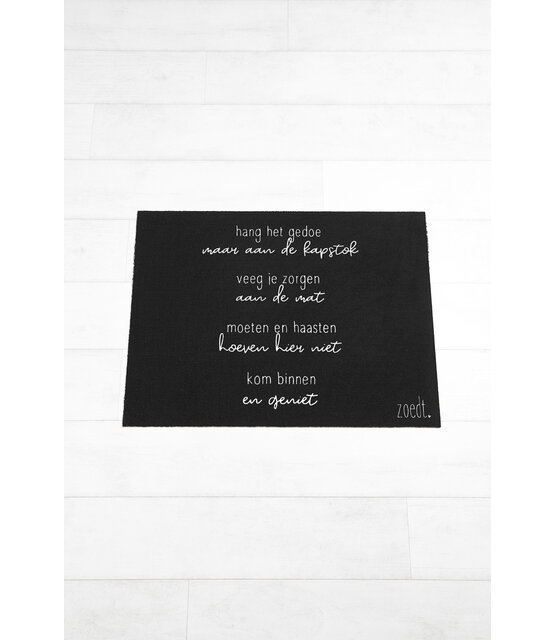 hang het gedoe
maar aan de kapstok
veeg je zorgen
aan de mat
moeten en haasten
hoeven hier niet
kom binnen
en geniet
zoedt.